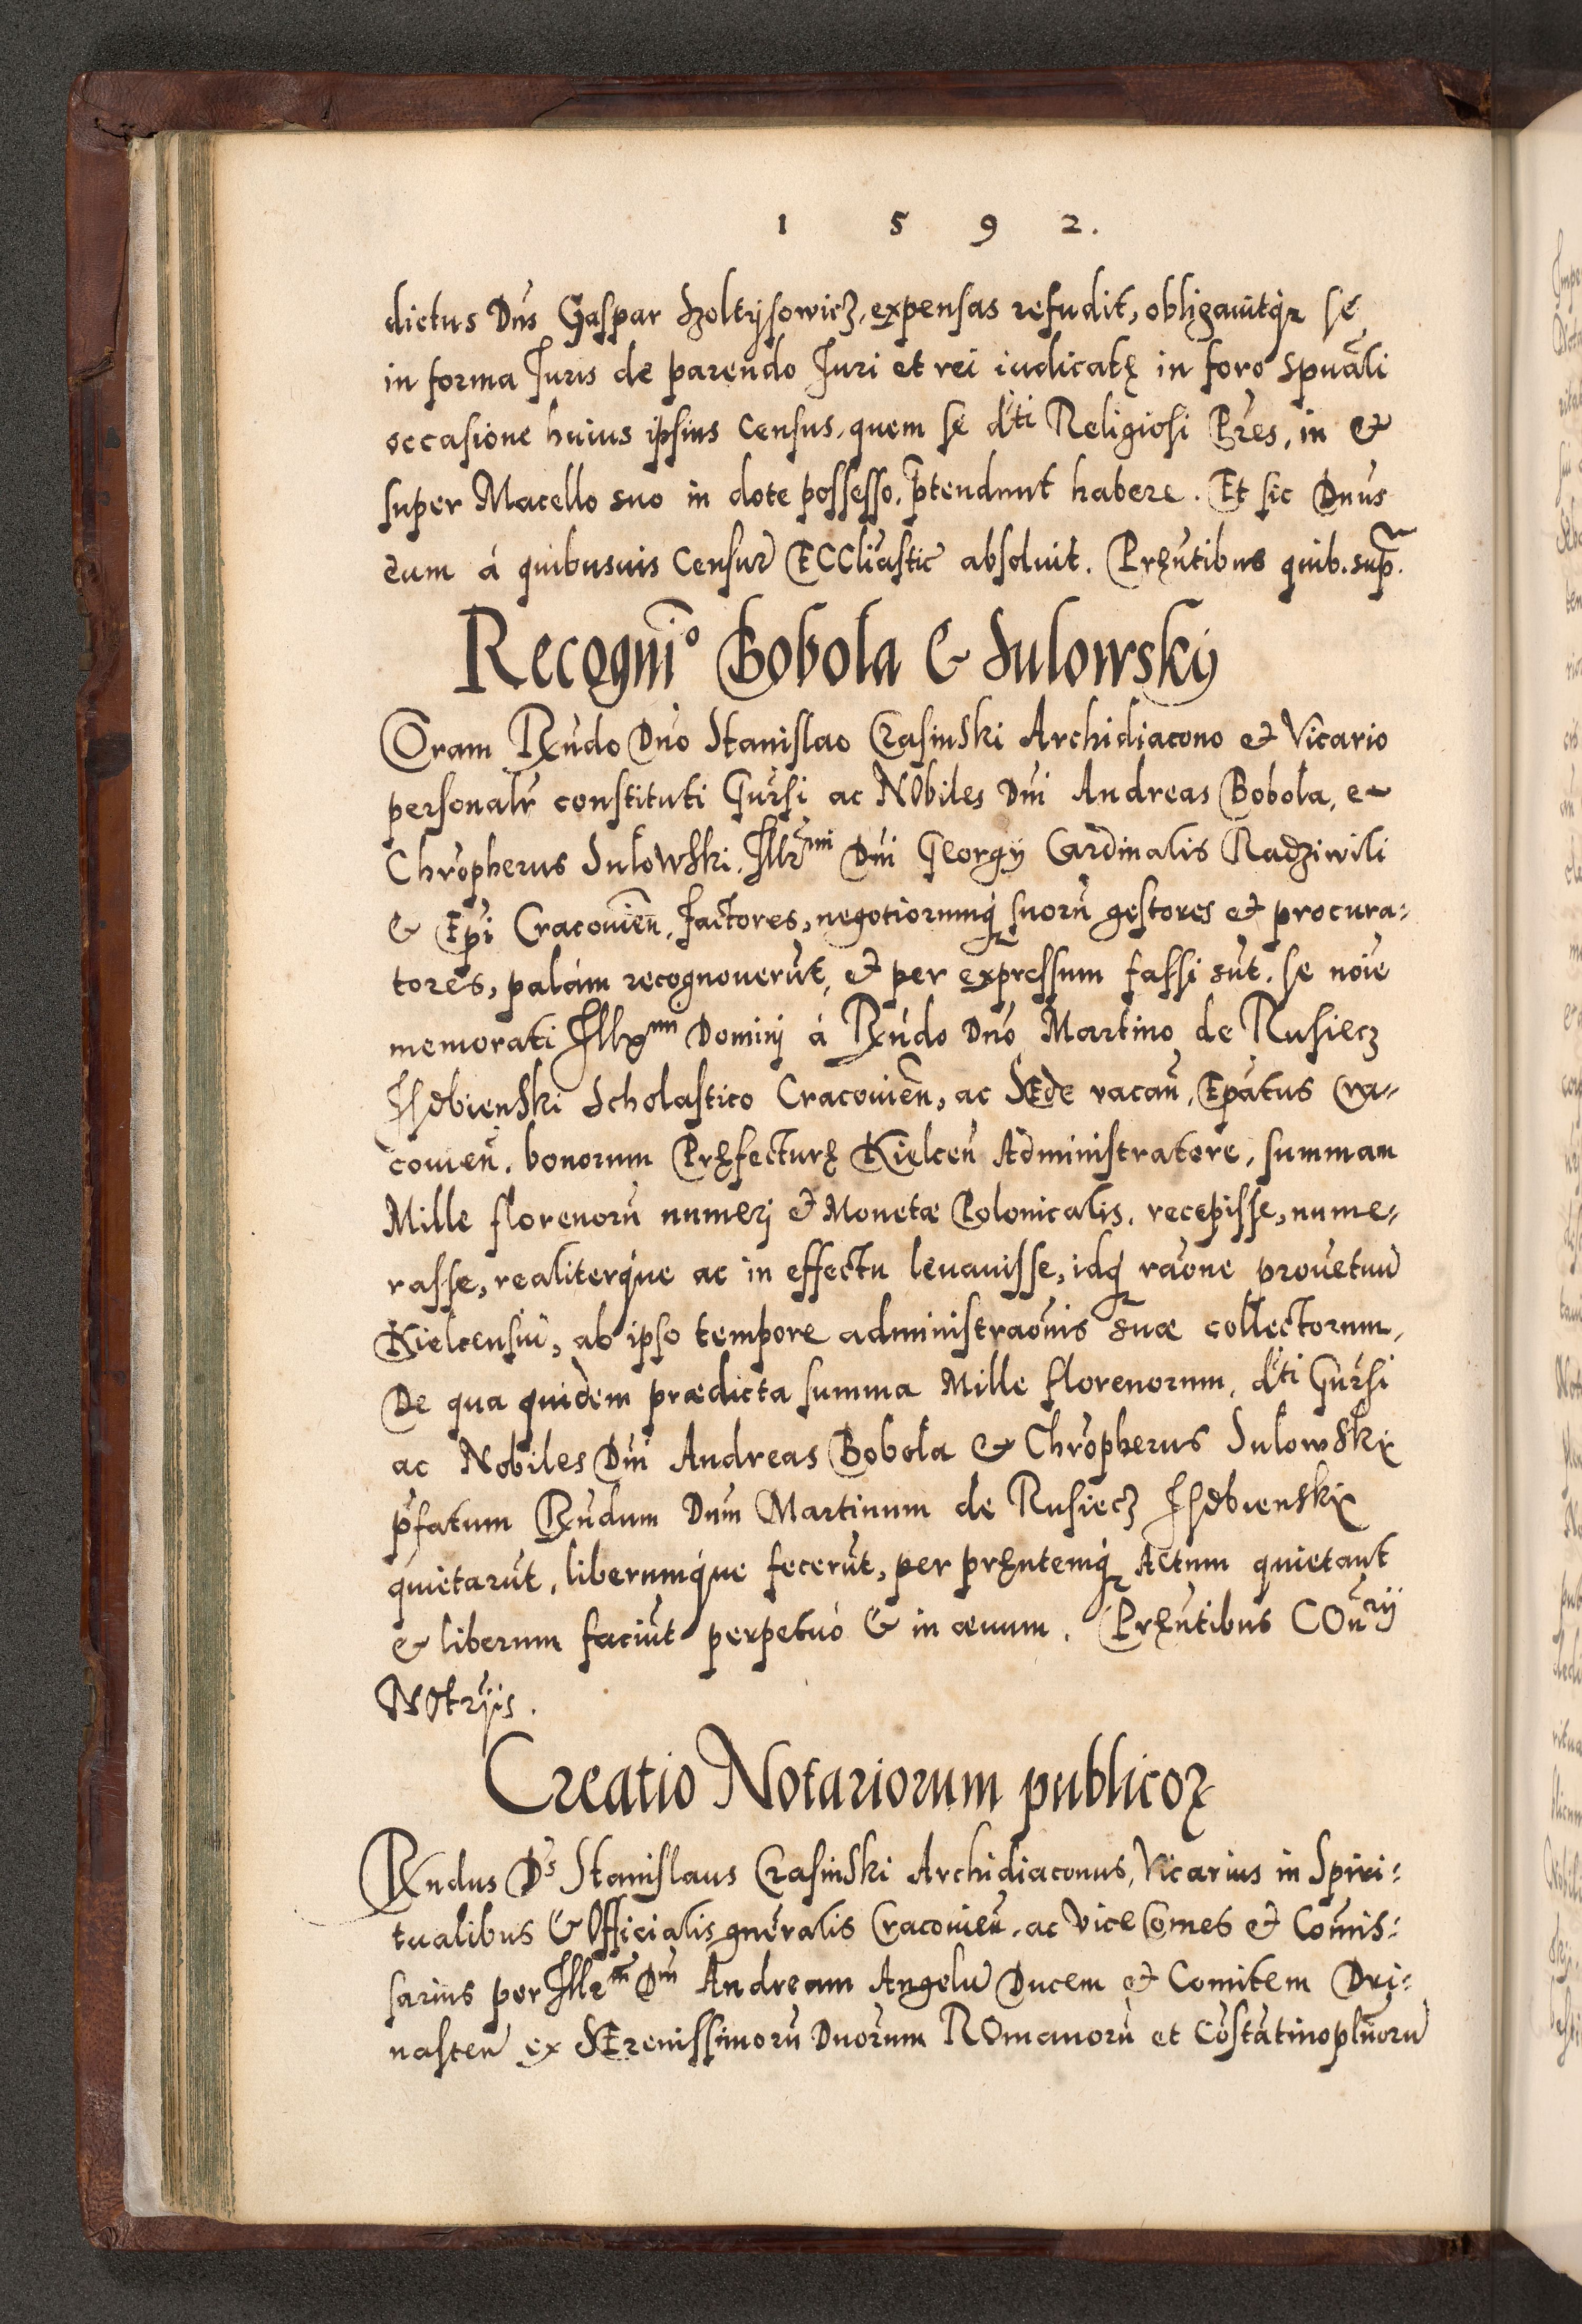 1 5 9 2.
dictus Dńs Gaspar Szoltysowicz, expensas refudit, obligauitqȝ se
in forma Juris de parendo Juri et rei iudicatę in foro spuāli
occasione huius ipsius Census, quem se dti Religiosi Pres, in &
super Macello suo in dote possesso, p̄tendunt habere. Et sic Dnus
eum á quibusuis Censur̃ ECCliastic̃ absoluit. Pręntibus quib. sup̃.
Recogni͠o Bobola & Sulowskÿ
Coram Rx̃ndo Dńo Stanislao Crasinski Archidiacono et Vicario
personalr̃ constituti Gursi ac NObiles Dni Andreas Bobola, e-
Chropherus Sulowski, Illr̃mi Dni Georgij Cardinalis Radziwili
& Epi Cracouień, factores, negotiorumq́ȝ suorū gestores et procura⸗
tores, palám recognouerūt, et per expressum fassi sūt, se noīe
memorati Illr̃mi Dominj á Rx̃ndo Dńo Martino de Rusiecz
Isdbienski Scholastico Cracouień, ac SEde vacań, Epātus Cra⸗
couień, bonorum Pręfecturę Kielceń Administratore, summam
Mille florenorū numerj et Monetæ Polonicalis, recepisse, nume⸗
rasse, realiterq́ue ac in effectu leuauisse, idq́ȝ raōne prouetuũ
Kielcensiū, ab ipso tempore administraōnis suæ collectorum,
De qua quidem prædicta summa Mille florenorum, dti Gursi
ac Nobiles Dni Andreas Bobola & Chropherus Sulowski
p̄fatum Rx̃ndum Dnm Martinum de Rusiecz Isdbienski
quietarūt, liberumq́ue fecerūt, per pręntemq́ȝ Actum quietant
& liberum faciūt perpetuó & in æuum. Pręntibus COñrij
NOtrijs.
Creatio Notariorum publicoꝝ
Rx̃ndus Ds Stanislaus Crasinski Archidiaconus, Vicarius in Spiri⸗
tualibus & Officialis gnēralis Cracouień, ac ViceComes et Comis⸗
sarius per Illr̃m Dm Andream Angelũ Ducem et Comitem Dri⸗
nasteñ ex SErenissimorū Dnorum ROmanorū et Cōstātinoplnorũ